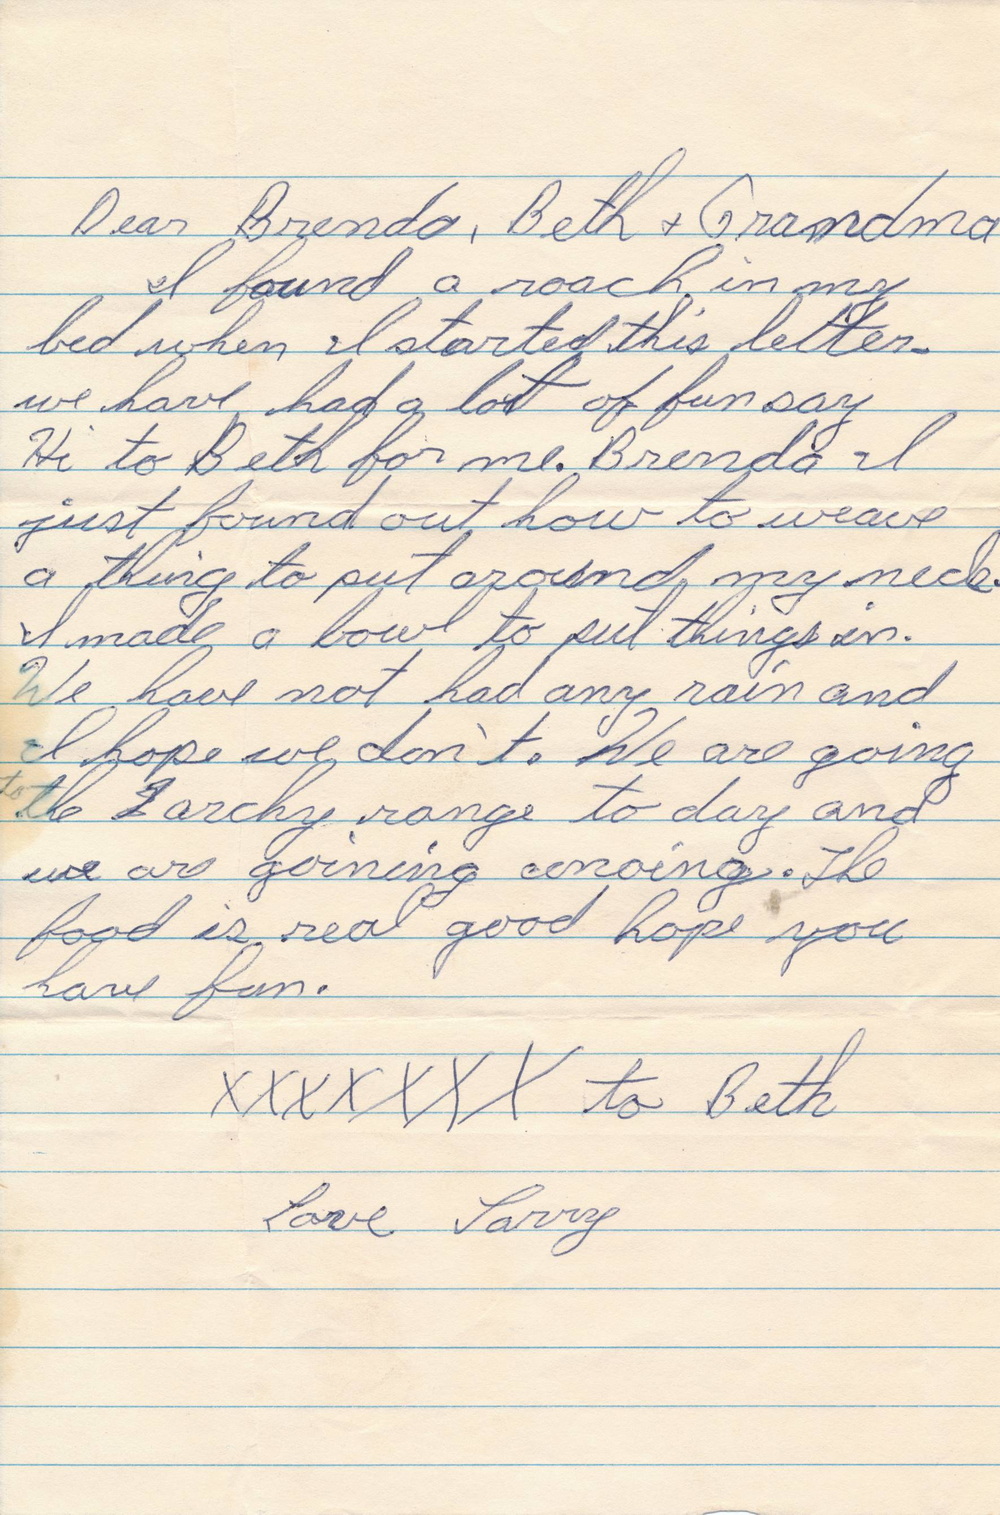 Dear Brenda, Beth & Grandma
I found a roach in my
bed when I started this letter.
we have had a lot of fun say
Hi to Beth for me. Brenda I
just found out how to weave
a thing to put around my neck.
I made a bowl to put things in.
We have not had any rain and
I hope we don't. We are going
to the archy range to day and
we are goining conoing. The
food is real good hope you
have fun.
XXXXXXX to Beth
Love Larry